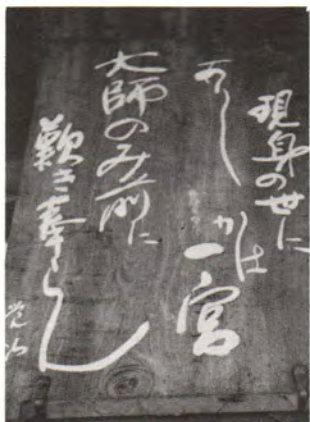 現身の世に
かは一宮
大師のみ前に
歎き奉らん